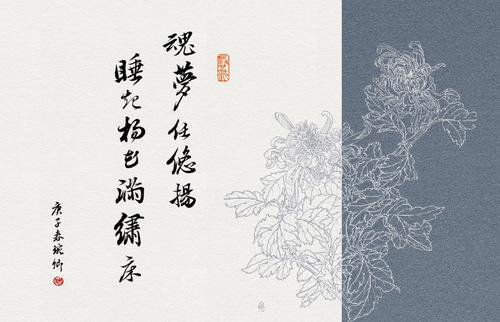 魂夢任悠揚
睡起楊花滿繡床
庚子春琬卿